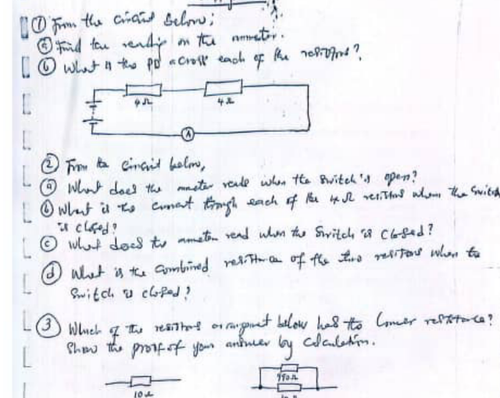 ① From the circuit below;
ⓐ Find the reading on the ammeter.
ⓑ What is the PD across each of the resistors?
4Ω 4Ω
A
② From the circuit below,
ⓐ What does the ammeter reads when the switch is open?
ⓑ What is the current through each of the 4Ω resistors when the switch
is closed?
ⓒ What does the ammeter read when the switch is closed?
ⓓ What is the combined resistance of the two resistors when the
switch is closed?
③ Which of the resistors arrangement below has the lower resistance?
Show the proof of your answer by calculation.
10Ω